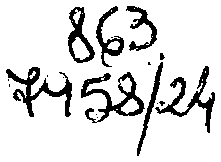 863
7458/24